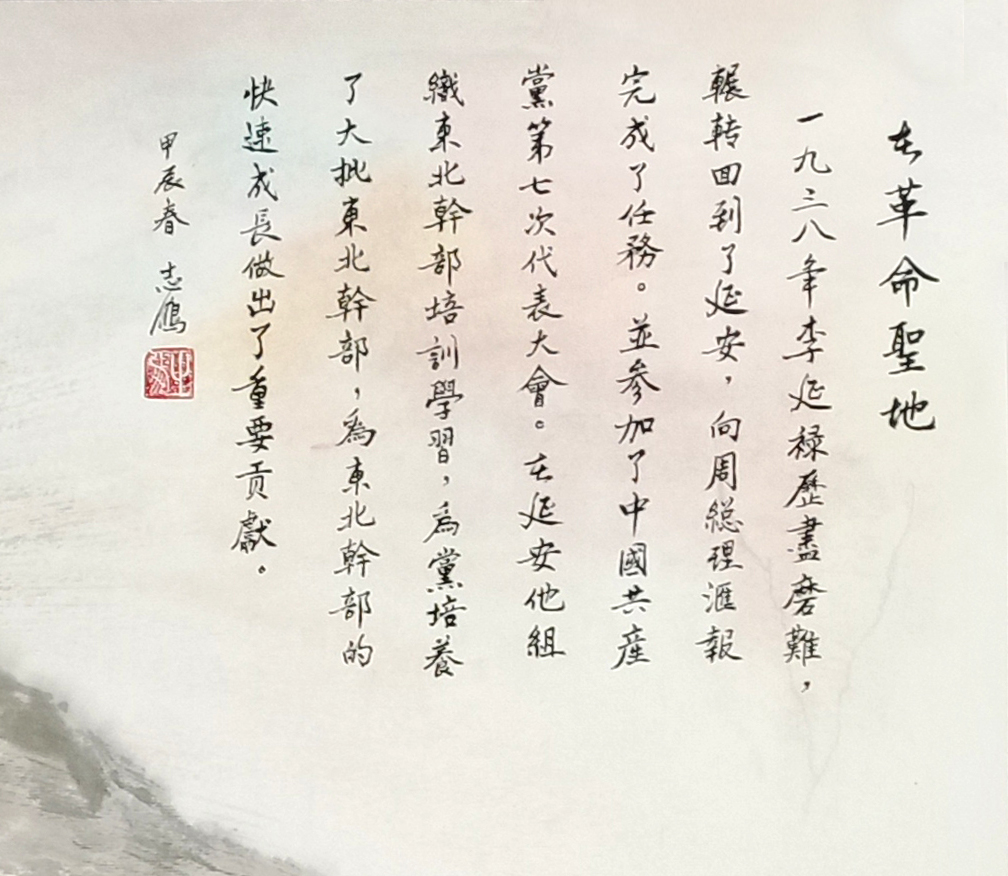 在革命聖地
一九三八年李延禄歷盡磨難，
輾转回到了延安，向周総理滙報
完成了任務。並参加了中國共産
黨第七次代表大會。在延安他組
織東北幹部培訓學習，爲黨培養
了大批東北幹部，爲東北幹部的
快速成長做出了重要贡獻。
甲辰春 志鴈